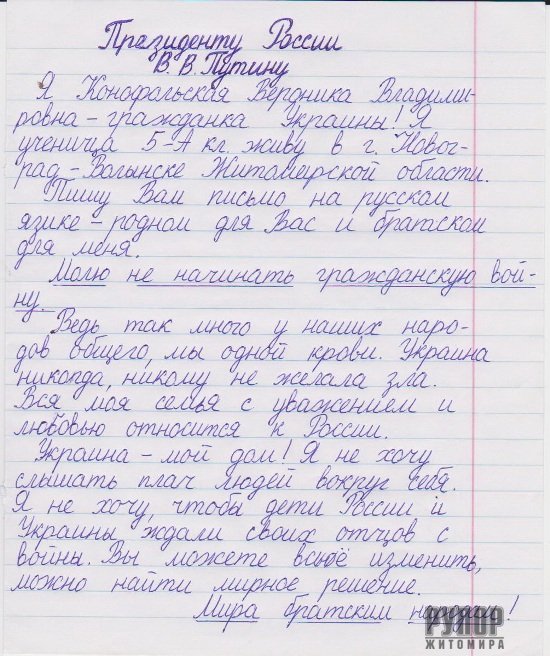 Президенту России
В. В. Путину
Я Конофальская Вероника Владими-
ровна – гражданка Украины! Я
ученица 5-А кл. живу в г. Новог-
рад-Волынске Житомирской области.
Пишу Вам письмо на русском
языке – родном для Вас и братском
для меня.
Молю не начинать гражданскую вой-
ну.
Ведь так много у наших наро-
дов общего, мы одной крови. Украина
никогда, никому не желала зла.
Вся моя семья с уважением и
любовью относится к России.
Украина – мой дом! Я не хочу
слышать плач людей вокруг себя.
Я не хочу, чтобы дети России и
Украины ждали своих отцов с
войны. Вы можете всё изменить,
можно найти мирное решение.
Мира братским !
РУПОР
ЖИТОМИРА